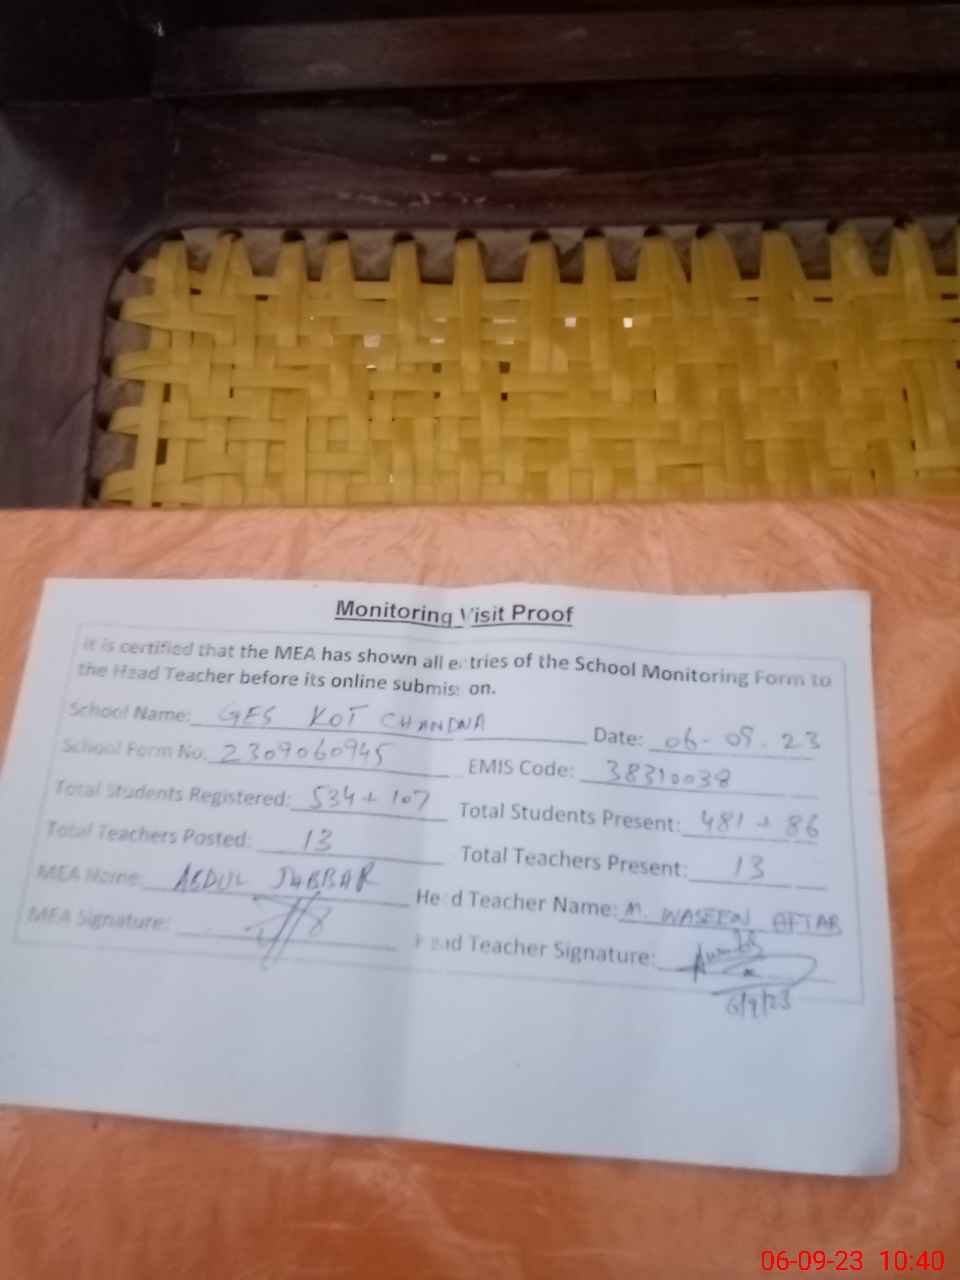 Monitoring Visit Proof
It is certified that the MEA has shown all entries of the School Monitoring Form to
the Head Teacher before its online submission.
School Name: GES KOT CHANDNA Date: 06-09-23
School Form No. 2309060945 EMIS Code: 38310038
Total Students Registered: 534+107 Total Students Present: 481+86
Total Teachers Posted: 13 Total Teachers Present: 13
MEA Name: ABDUL JABBAR Head Teacher Name: M. WASEEM AFTAB
MEA Signature: Head Teacher Signature:
6/9/23
06-09-23 10:40